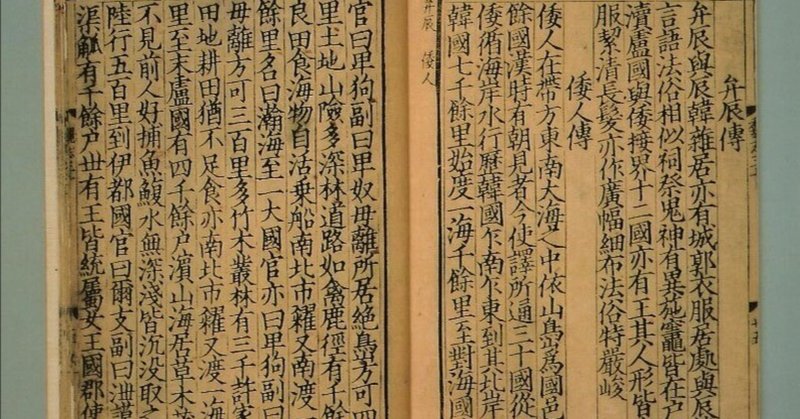 弁辰傳
弁辰與辰韓雜居亦有城郭衣服居處與辰
言語法俗相似祠祭鬼神有異施竈皆在户
瀆盧國與倭接界十二國亦有王其人形皆
服絜清長髮亦作廣幅細布法俗特嚴峻
倭人傳
倭人在帶方東南大海之中依山島爲國邑
餘國漢時有朝見者今使譯所通三十國從
倭循海岸水行歷韓國乍南乍東到其北岸
韓國七千餘里始度一海千餘里至對海國
弁辰 倭人
官曰卑狗副曰卑奴毋離所居絶島方可四
里土地山險多深林道路如禽鹿徑有千餘
良田食海物自活乗船南北市糴又南渡
餘里名曰瀚海至一大國官亦曰卑狗副曰
毋離方可三百里多竹木叢林有三千許家
田地耕田猶不足食亦南北市糴又渡一海
里至末盧國有四千餘户濵山海居草木
不見前人好捕魚鰒水無深淺皆沉没取之
陸行五百里到伊都國官曰爾支副曰泄謨
渠觚有千餘户世有王皆統屬女王國郡使